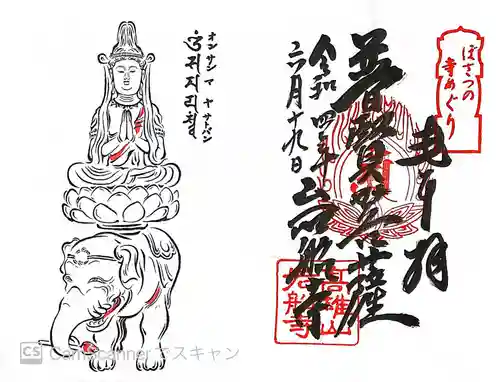 ぼさつの
寺めぐり
奉拝
普賢菩薩
岩船寺
令和四年
六月十九日
高雄山
岩船寺
オン サン マ ヤ サトバン
CS CamScanner でスキャン